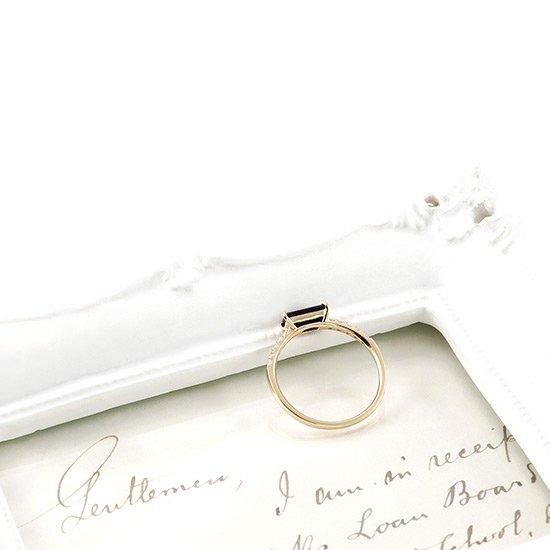 Gentlemen, I am in receip
Loan Board
School,